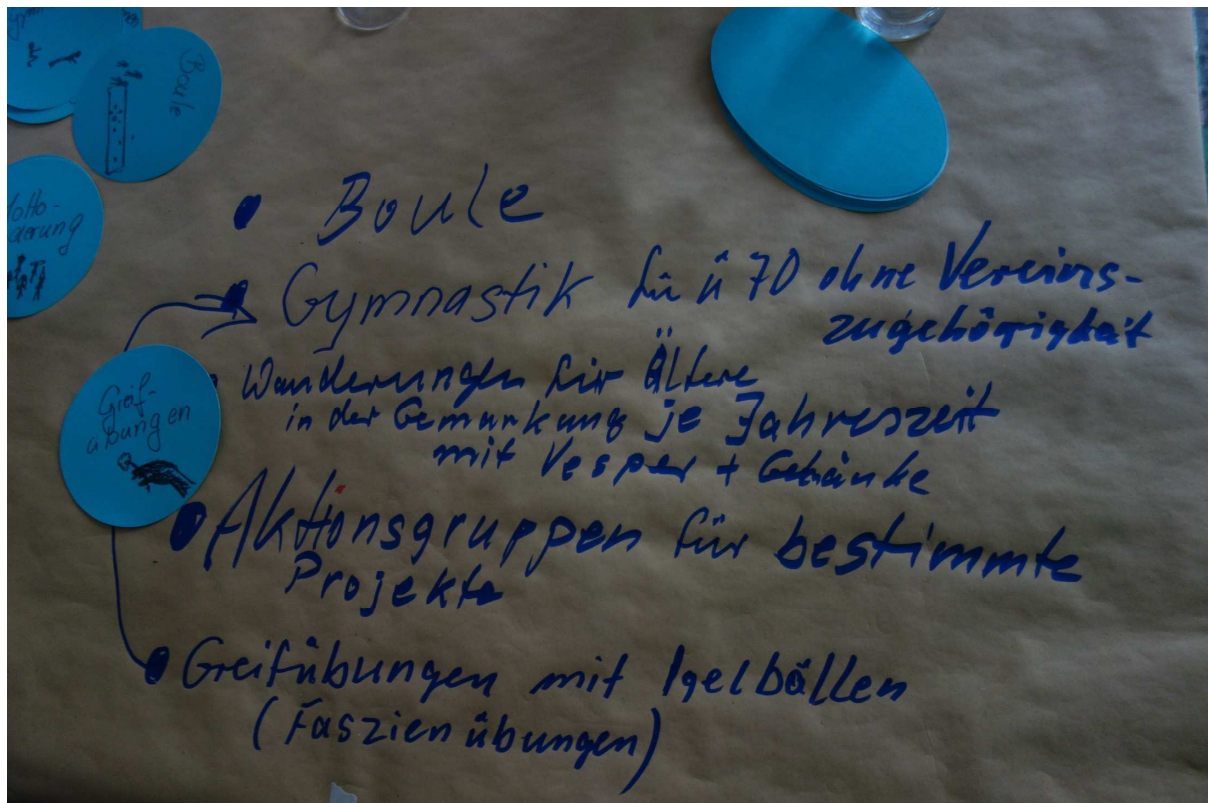 Boule
• Boule
• Gymnastik für ü 70 ohne Vereins-
zugehörigkeit
• Wanderungen für Ältere
in der Gemarkung je Jahreszeit
mit Vesper + Getränke
Greif-
übungen
• Aktionsgruppen für bestimmte
Projekte
• Greifübungen mit Igelbällen
(Faszienübungen)